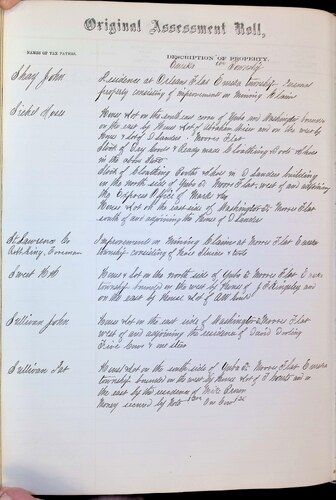 Original Assessment Roll,
NAMES OF TAX PAYERS.
DESCRIPTION OF PROPERTY.
Eureka Township
Shay John
Residence at Orleans Flat Eureka township. Personal
property consisting of improvements on Mining Claims
House & Lot on the south east corner of Yuba and Washington bounded
on the east by House & Lot of Abraham and on the west by
House & Lot of D Landes Morres Flat
Stock of Dry Goods & Ready made Cloathing Boots & Shoes
in the above
Stock of Cloathing Boots & Shoes in D Landes building
on the north side of Yuba St Morres Flat, west of and adjoining
the Express Office of Marks &
House & Lot on the east side of Washington St Morres Flat
south of and adjoining the House of D Landes
St Lawrence Co
Improvements on Mining Claims at Morres Flat Eureka
township consisting of Hose &
Sweet
House & Lot on the north side of Yuba St Morres Flat Eureka
township bounded on the west by House of J Kingsley and
on the east by House & Lot of
Sullivan John
House & Lot on the east side of Washington St Morres Flat
west of and adjoining the residence of David
Five Cows & one
Sullivan Pat
House & Lot on the south side of Yuba St Morres Flat Eureka
township bounded on the west by House & Lot of and on
the east by the residence of Brown
Money secured by Note